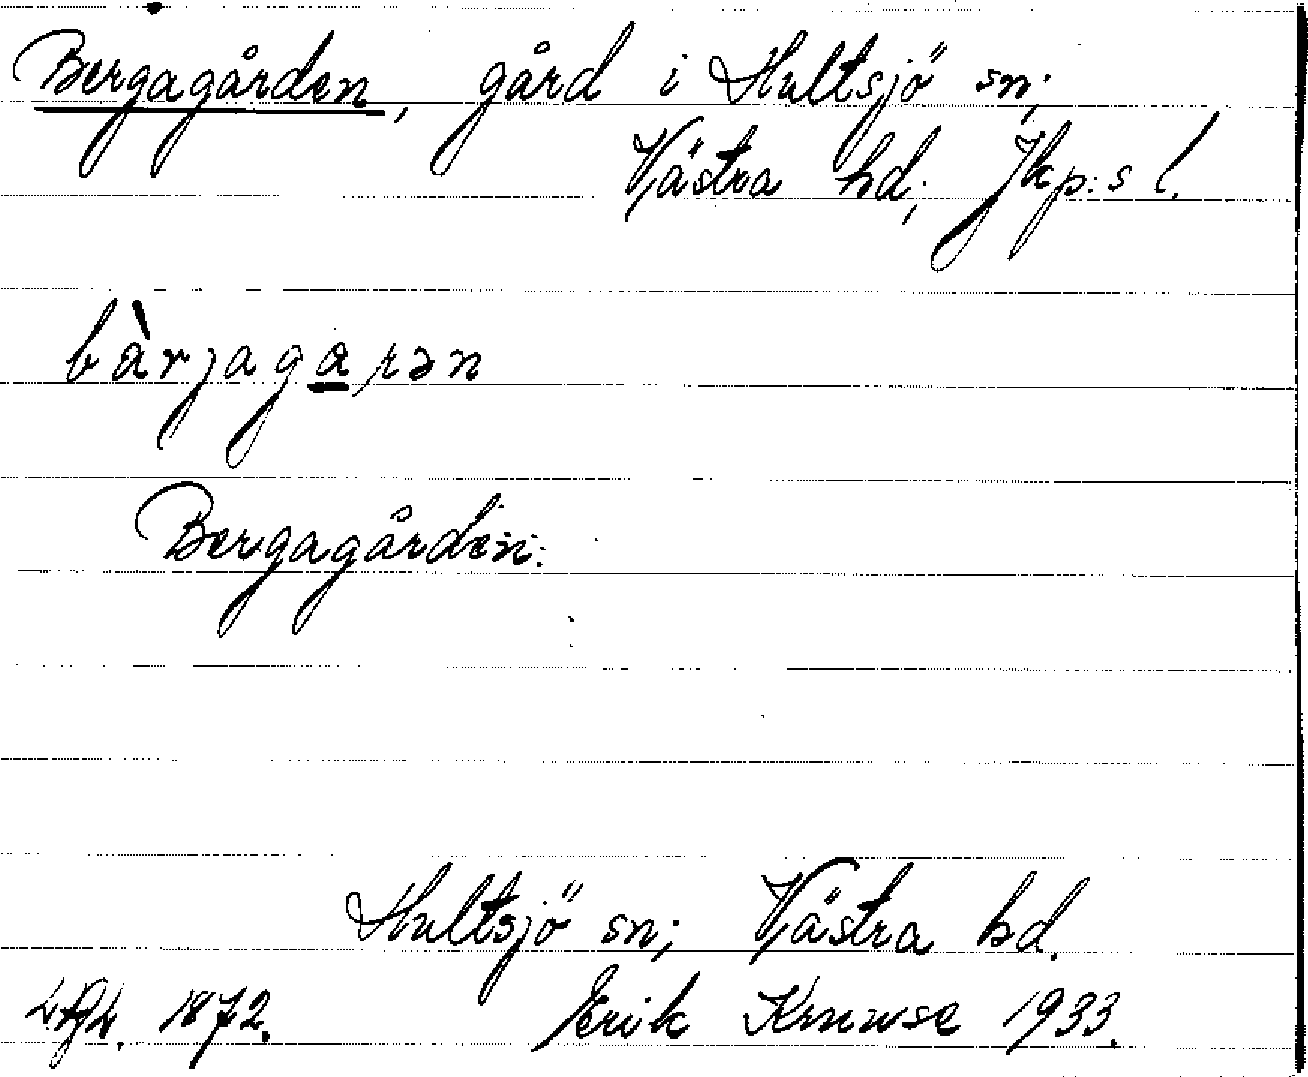 Bergagården, gård i Hultsjö sn;
Västra hd; Jkp:s l.
bàrjagarən
Bergagården.
Hultsjö sn; Västra hd.
1872. Erik Kruuse 1933.